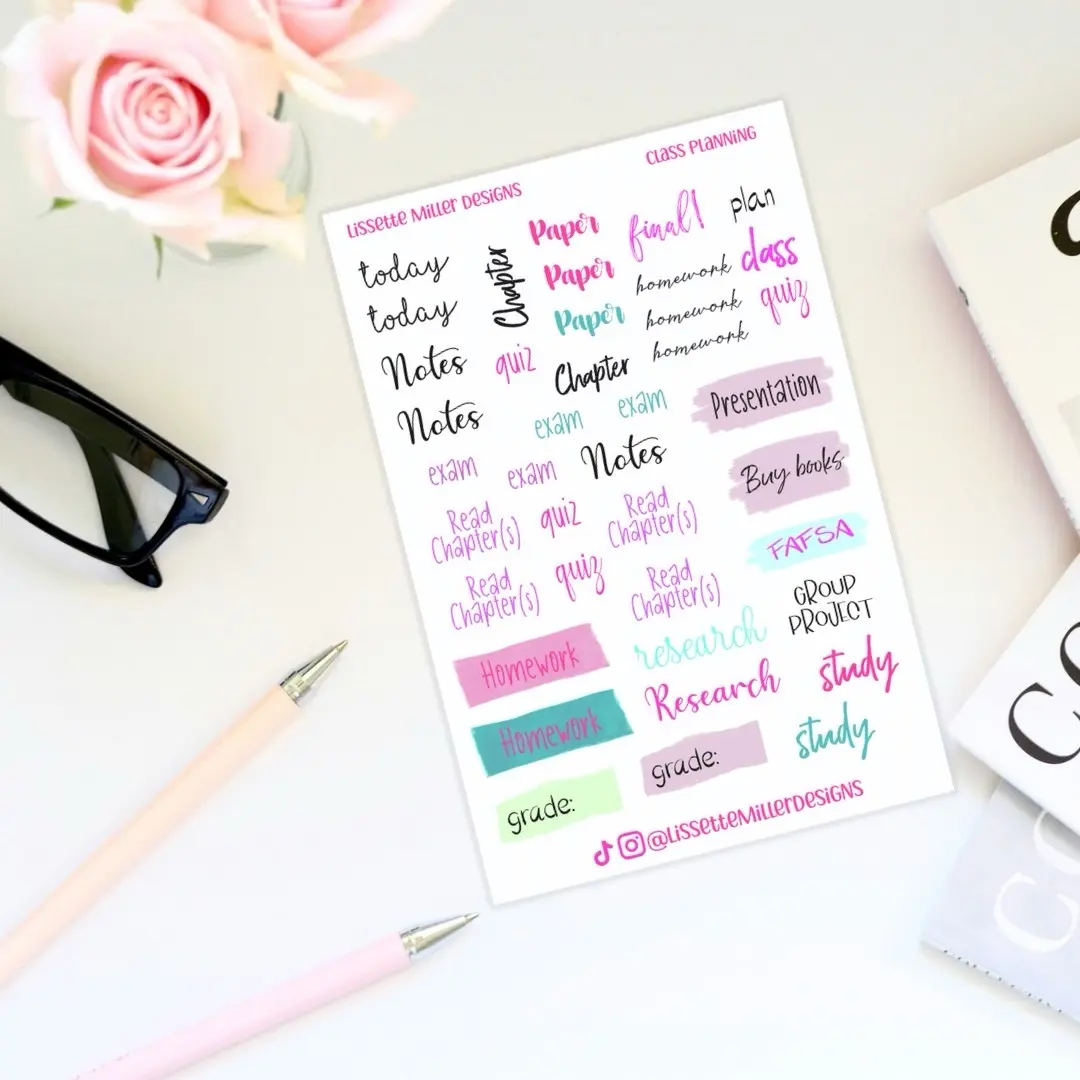 Lissette Miller Designs
Class Planning
today
today
Chapter
Paper
Paper
Paper
final!
plan
homework
homework
homework
class
quiz
Notes
quiz
Chapter
Notes
exam
exam
Presentation
exam
exam
Notes
Buy books
Read
Chapter(s)
quiz
Read
Chapter(s)
FAFSA
Read
Chapter(s)
quiz
Read
Chapter(s)
GROUP
PROJECT
Homework
research
study
Homework
Research
study
grade:
grade:
@LissetteMillerDesigns
CO
CO